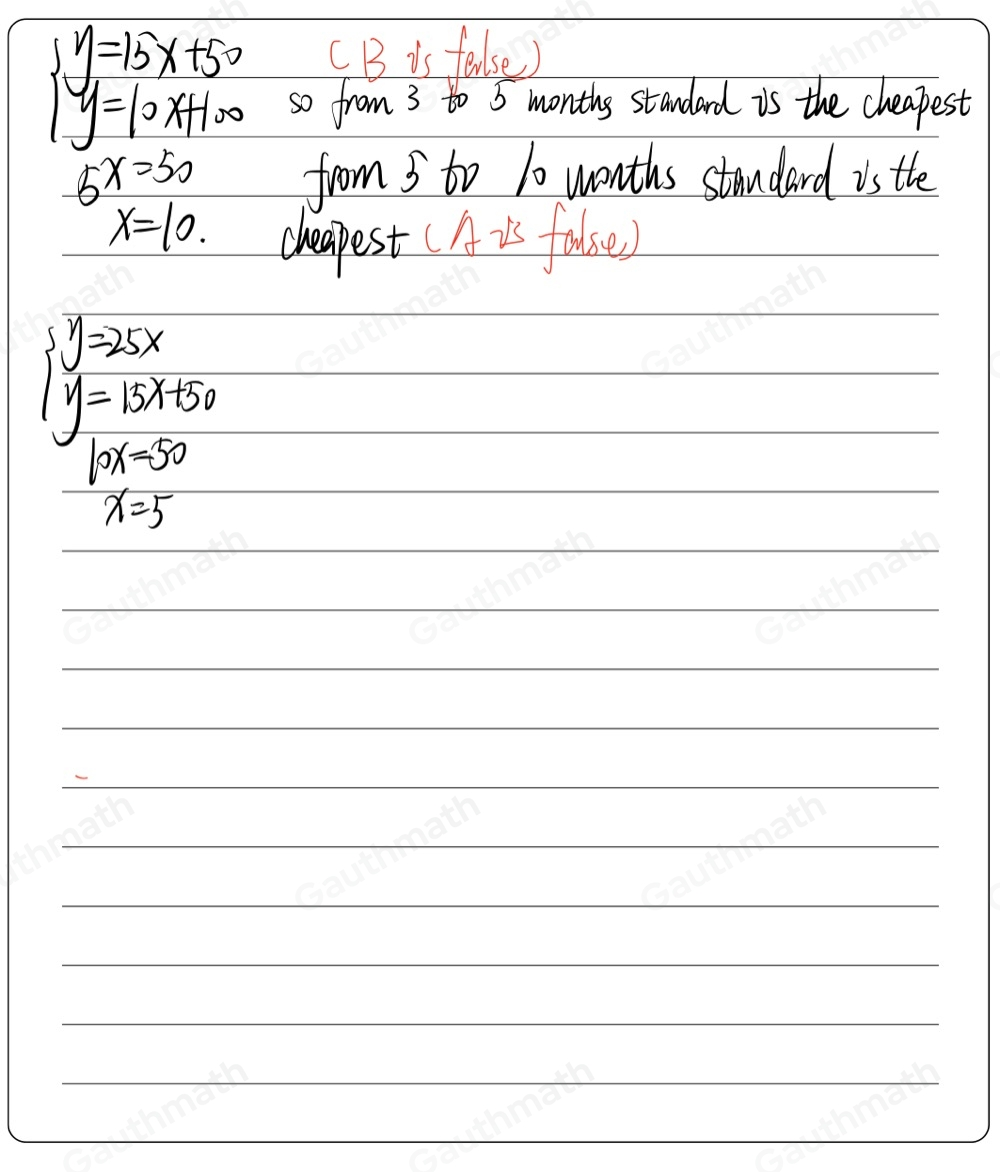 y=15x+50 (B is false)
y=10x+100 so from 3 to 5 months standard is the cheapest
5x=50 from 5 to 10 months standard is the
x=10. cheapest (A is false)
y=25x
y=15x+50
10x=50
x=5
Gauthmath